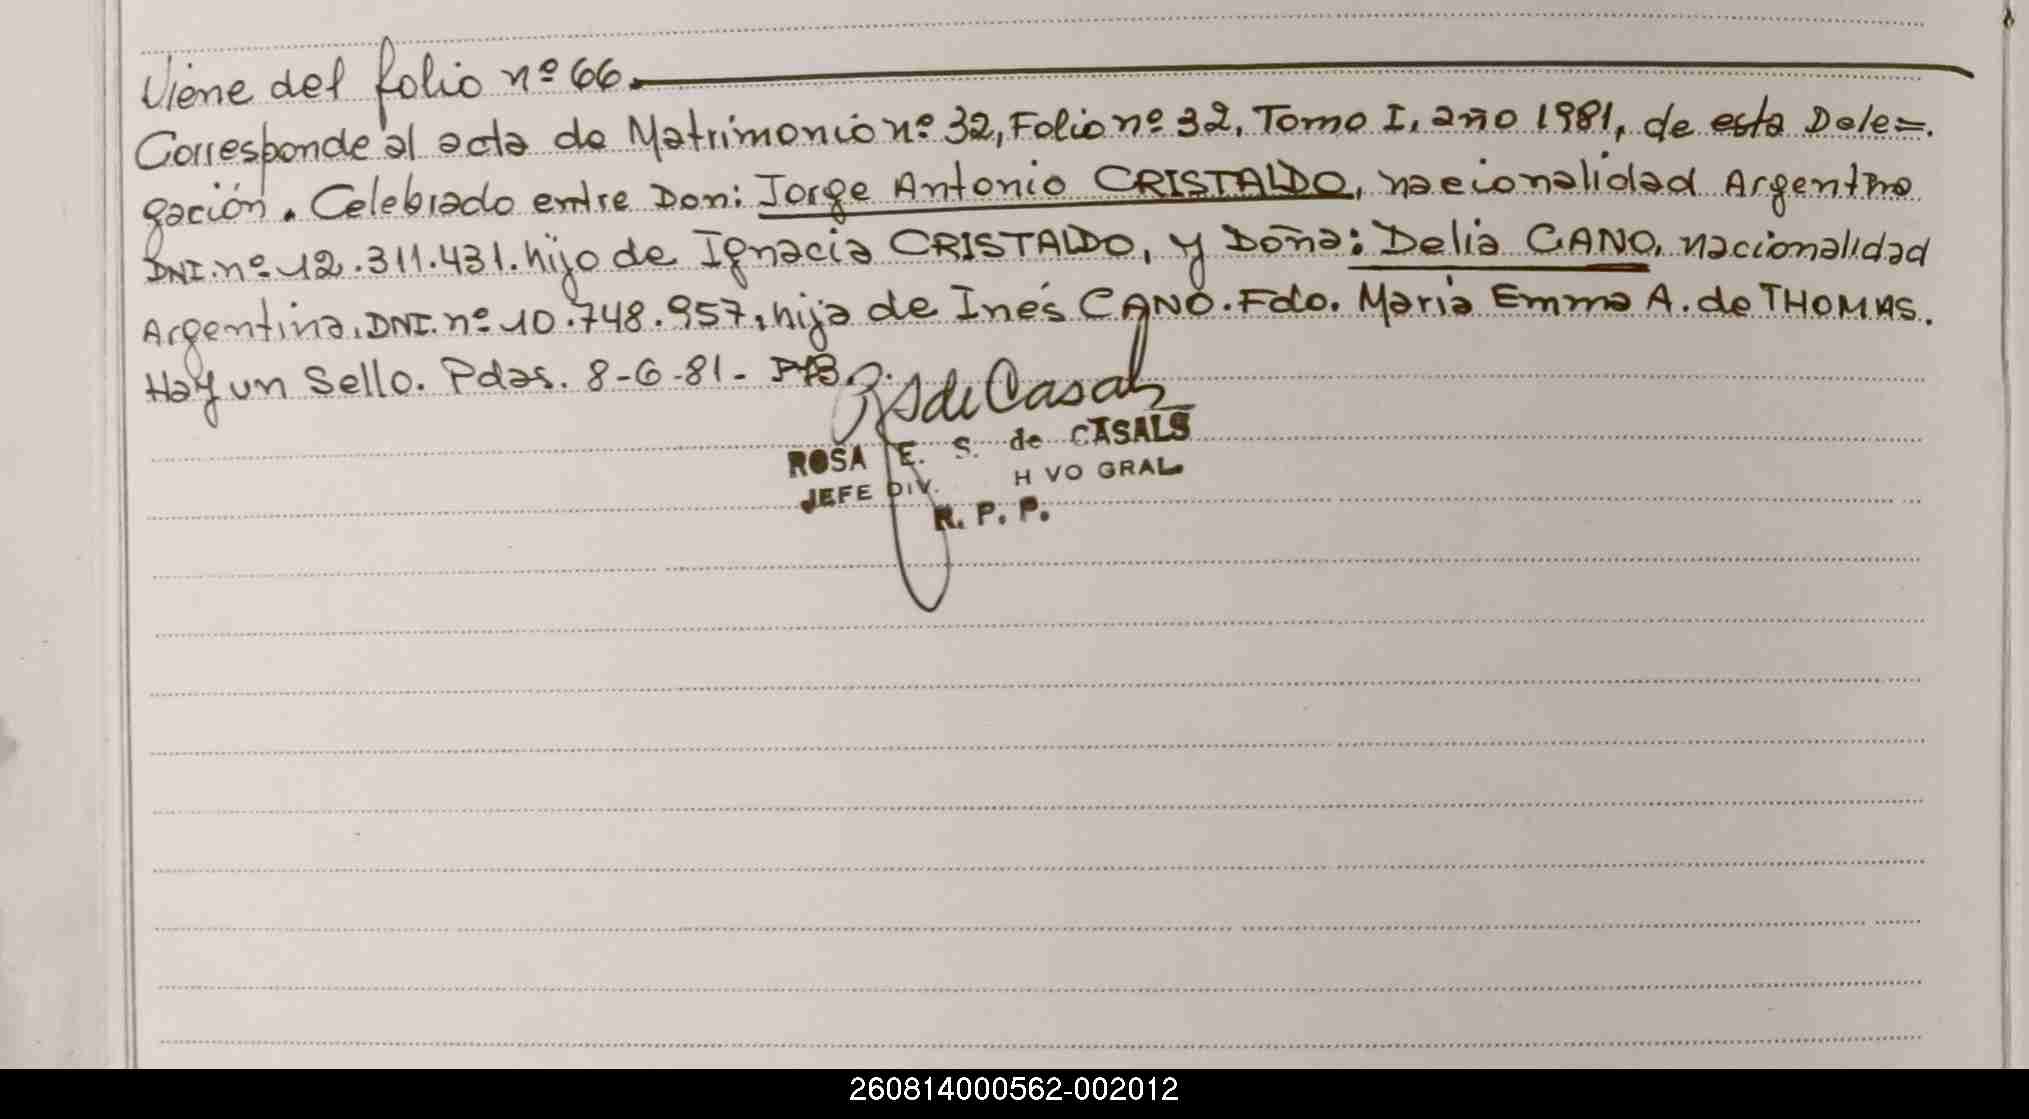 Viene del folio nº 66.
Corresponde al acta de Matrimonio nº 32, Folio nº 32, Tomo I, año 1981, de esta Dele=
gación. Celebrado entre Don: Jorge Antonio CRISTALDO, nacionalidad Argentino
DNI. nº 12.311.431. hijo de Ignacia CRISTALDO, y Doña: Delia CANO, nacionalidad
Argentina, DNI. nº 10.748.957, hija de Inés CANO. Fdo. Maria Emma A. de THOMAS.
Hay un Sello. Pdas. 8-6-81-
RSdeCasals
ROSA E. S. de CASALS
JEFE DIV. H VO GRAL
R. P. P.
260814000562-002012